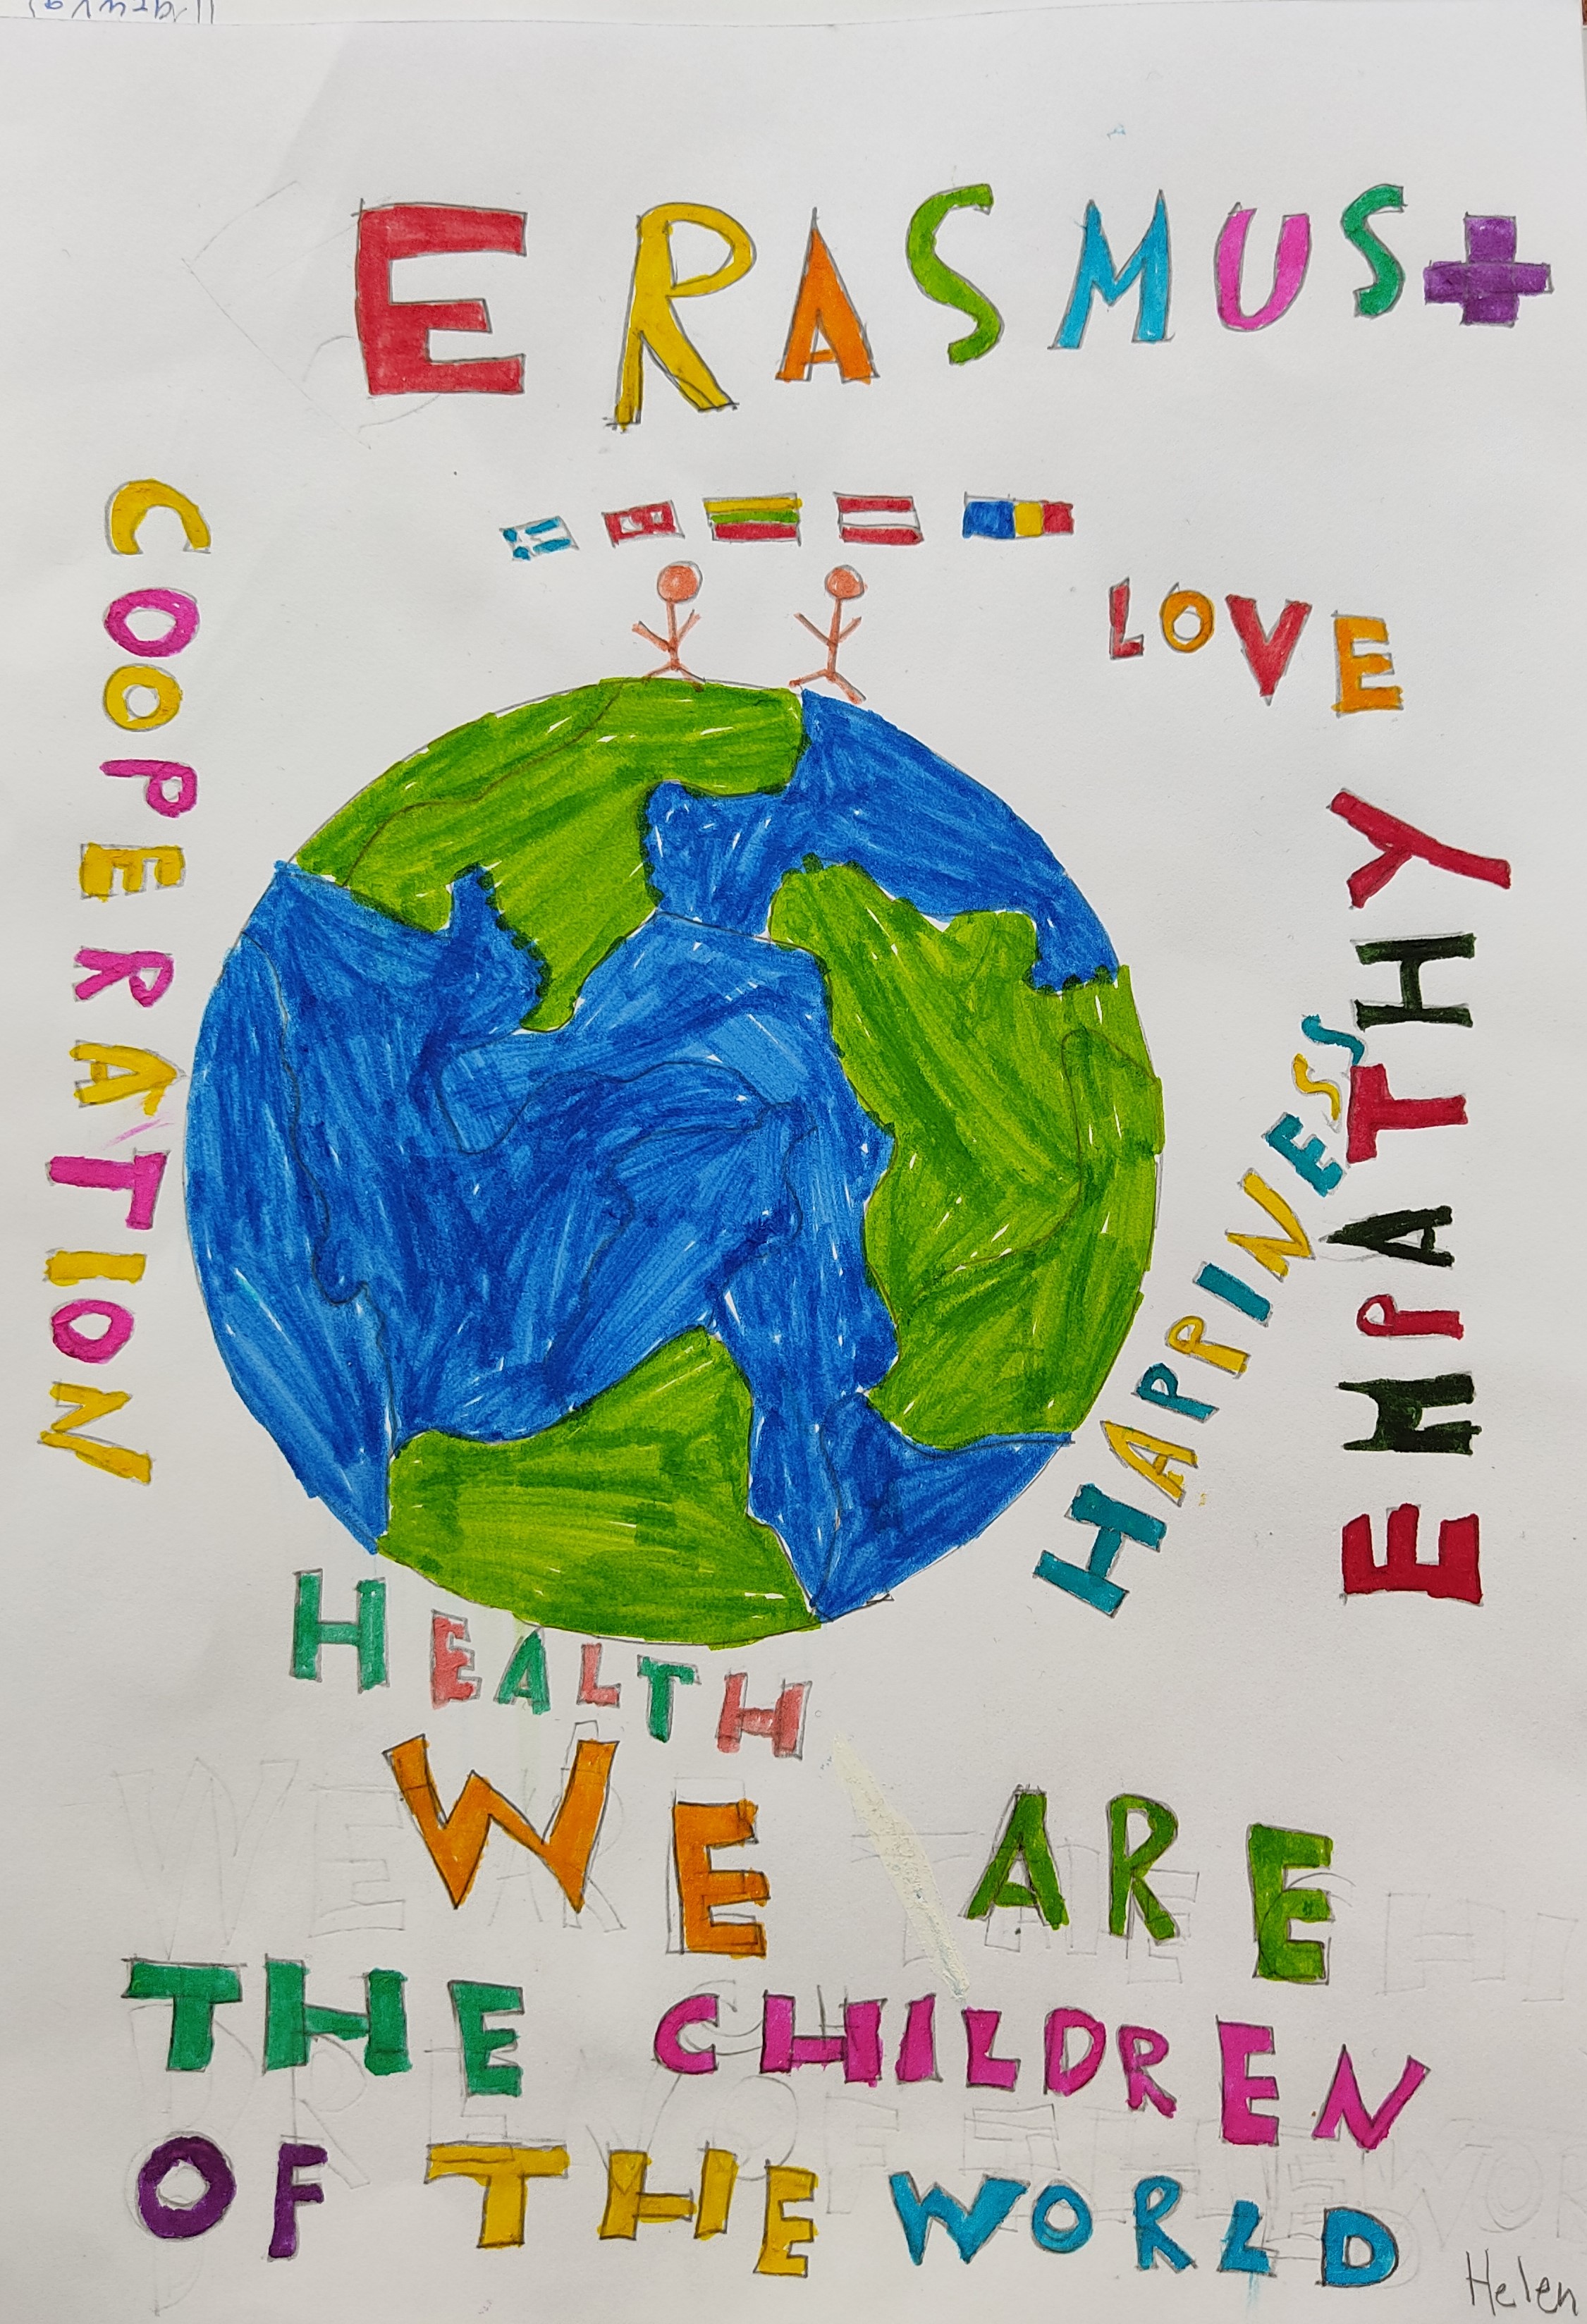 ERASMUS+
COOPERATION
LOVE
EMPATHY
HAPPINESS
HEALTH
WE ARE
THE CHILDREN
OF THE WORLD
Helen